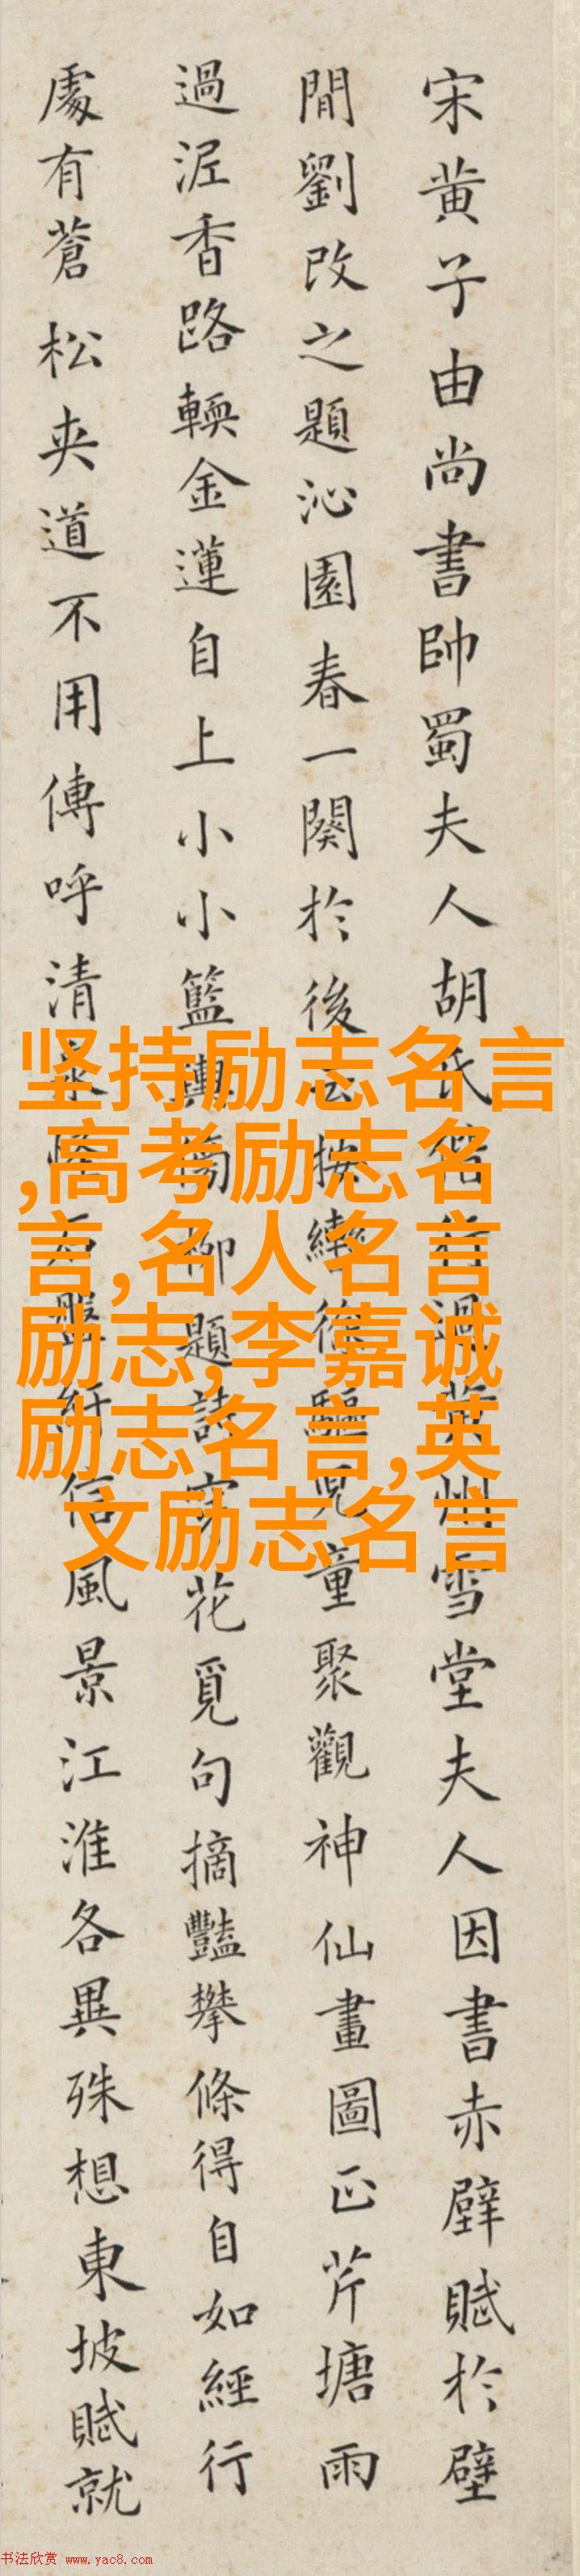 宋黄子由尚書帥蜀夫人胡氏偕行過黄州雪堂夫人因書赤壁賦於壁
間劉改之題沁園春一闋於後云按轡徐驅兒童聚觀神仙畫圖正芹塘雨
過泥香路輭金蓮自上小小籃輿傍柳題詩穿花覓句摘豔攀條得自如經行
處有蒼松夾道不用傳呼清泉怪石盤紆信風景江淮各異殊想東坡賦就
坚持励志名言
,高考励志名
言,名人名言
励志,李嘉诚
励志名言,英
文励志名言
书法欣赏 www.yac8.com